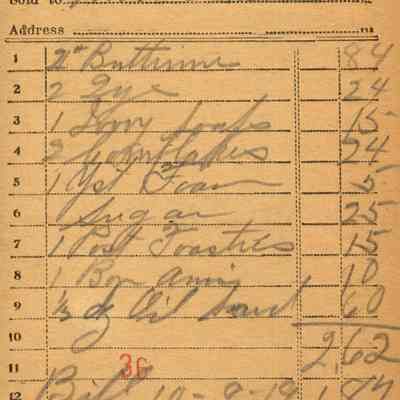 Sold to
Address
1 2# Butterine 84
2 2 24
3 1 Ivory 15
4 2 Cornflakes 24
5 1 Yst Foam 5
6 Sugar 25
7 1 Post Toasties 15
8 1 Bon Ami 10
9 ⅓ dz Oil Sard 60
10 2,62
11 36
12 Bill 10-9-19